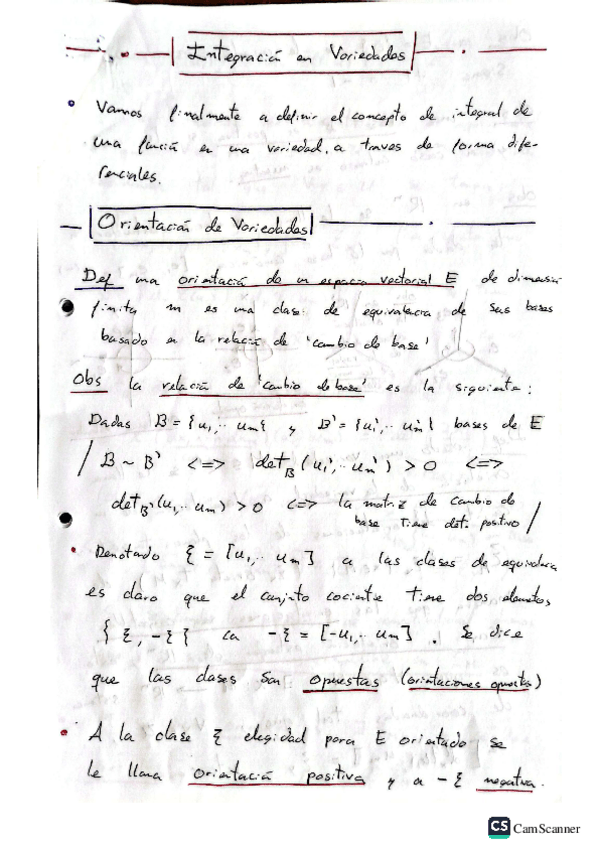 Integración en Variedades
• Vamos finalmente a definir el concepto de integral de
una función en una variedad, a traves de forma dife-
renciales.
Orientación de Variedades
Def una orientació de un espacio vectorial E de dimensió
finita m es una clase de equivalencia de sus bases
basado en la relació de 'cambio de base'
Obs la relació de 'cambio de base' es la siguiente:
Dadas B = {u₁,·· um} y B' = {u₁',·· um'} bases de E
/ B ~ B' <=> det_B (u₁',·· um') > 0 <=>
det_B' (u₁,·· um) > 0 <=> la matriz de cambio de
base tiene det. positivo /
• Denotado ξ = [u₁,·· um] a las clases de equivalencia
es claro que el conjunto cociente tiene dos elementos
{ ξ, -ξ } con -ξ = [-u₁,·· um] . Se dice
que las clases son opuestas (orientaciones opuestas)
• A la clase ξ elegidad para E orientado se
le llama orientació positiva y a -ξ negativa.
CS CamScanner